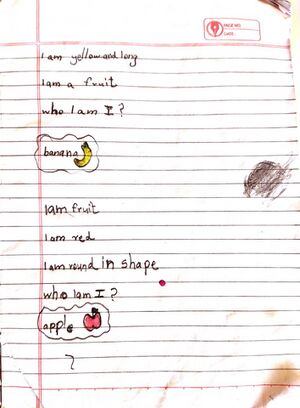 PAGE NO.
DATE:
I am yellow and long
I am a fruit
who I am I ?
banana
I am fruit
I am red
I am round in shape
who I am I ?
apple
?